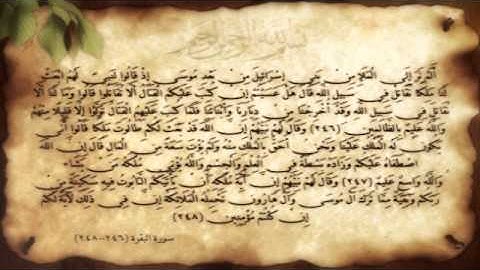 بسم الله الرحمن الرحيم
أَلَمْ تَرَ إِلَى الْمَلَإِ مِنْ بَنِي إِسْرَائِيلَ مِنْ بَعْدِ مُوسَى إِذْ قَالُوا لِنَبِيٍّ لَهُمُ ابْعَثْ
لَنَا مَلِكًا نُقَاتِلْ فِي سَبِيلِ اللَّهِ قَالَ هَلْ عَسَيْتُمْ إِنْ كُتِبَ عَلَيْكُمُ الْقِتَالُ أَلَّا تُقَاتِلُوا قَالُوا وَمَا لَنَا أَلَّا
نُقَاتِلَ فِي سَبِيلِ اللَّهِ وَقَدْ أُخْرِجْنَا مِنْ دِيَارِنَا وَأَبْنَائِنَا فَلَمَّا كُتِبَ عَلَيْهِمُ الْقِتَالُ تَوَلَّوْا إِلَّا قَلِيلًا مِنْهُمْ
وَاللَّهُ عَلِيمٌ بِالظَّالِمِينَ (٢٤٦) وَقَالَ لَهُمْ نَبِيُّهُمْ إِنَّ اللَّهَ قَدْ بَعَثَ لَكُمْ طَالُوتَ مَلِكًا قَالُوا أَنَّى
يَكُونُ لَهُ الْمُلْكُ عَلَيْنَا وَنَحْنُ أَحَقُّ بِالْمُلْكِ مِنْهُ وَلَمْ يُؤْتَ سَعَةً مِنَ الْمَالِ قَالَ إِنَّ اللَّهَ
اصْطَفَاهُ عَلَيْكُمْ وَزَادَهُ بَسْطَةً فِي الْعِلْمِ وَالْجِسْمِ وَاللَّهُ يُؤْتِي مُلْكَهُ مَنْ يَشَاءُ
وَاللَّهُ وَاسِعٌ عَلِيمٌ (٢٤٧) وَقَالَ لَهُمْ نَبِيُّهُمْ إِنَّ آيَةَ مُلْكِهِ أَنْ يَأْتِيَكُمُ التَّابُوتُ فِيهِ سَكِينَةٌ مِنْ
رَبِّكُمْ وَبَقِيَّةٌ مِمَّا تَرَكَ آلُ مُوسَى وَآلُ هَارُونَ تَحْمِلُهُ الْمَلَائِكَةُ إِنَّ فِي ذَلِكَ لَآيَةً لَكُمْ
إِنْ كُنْتُمْ مُؤْمِنِينَ (٢٤٨)
سورة البقرة (٢٤٦-٢٤٨)